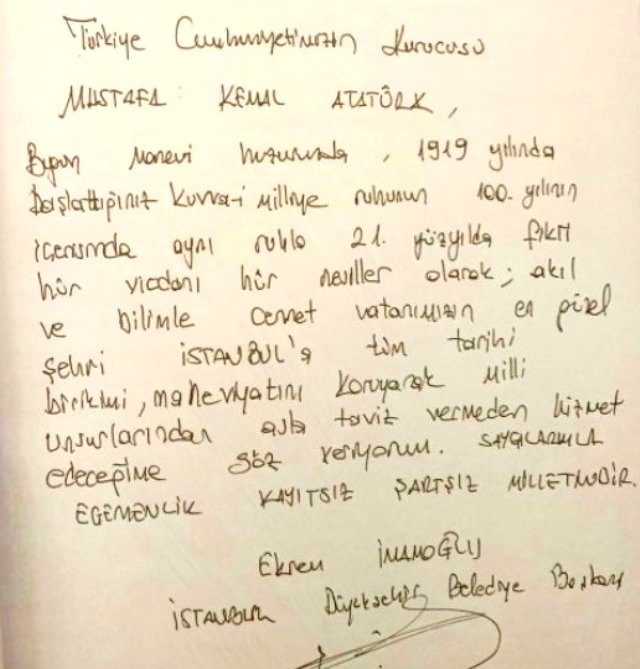 Türkiye Cumhuriyetimizin Kurucusu
MUSTAFA KEMAL ATATÜRK,
Bugün Manevi huzurunda, 1919 yılında
Başlattığınız Kuvva-i Milliye ruhunun 100. yılının
içerisinde aynı ruhla 21. yüzyılda fikri
hür vicdanı hür nesiller olarak; akıl
ve bilimle cennet vatanımızın en güzel
şehri İSTANBUL'a tüm tarihi
birikimi, maneviyatını koruyarak Milli
unsurlarından asla taviz vermeden hizmet
edeceğime söz veriyorum. SAYGILARIMLA
EGEMENLİK KAYITSIZ ŞARTSIZ MİLLETİNDİR.
Ekrem İMAMOĞLU
İSTANBUL Büyükşehir Belediye Başkanı